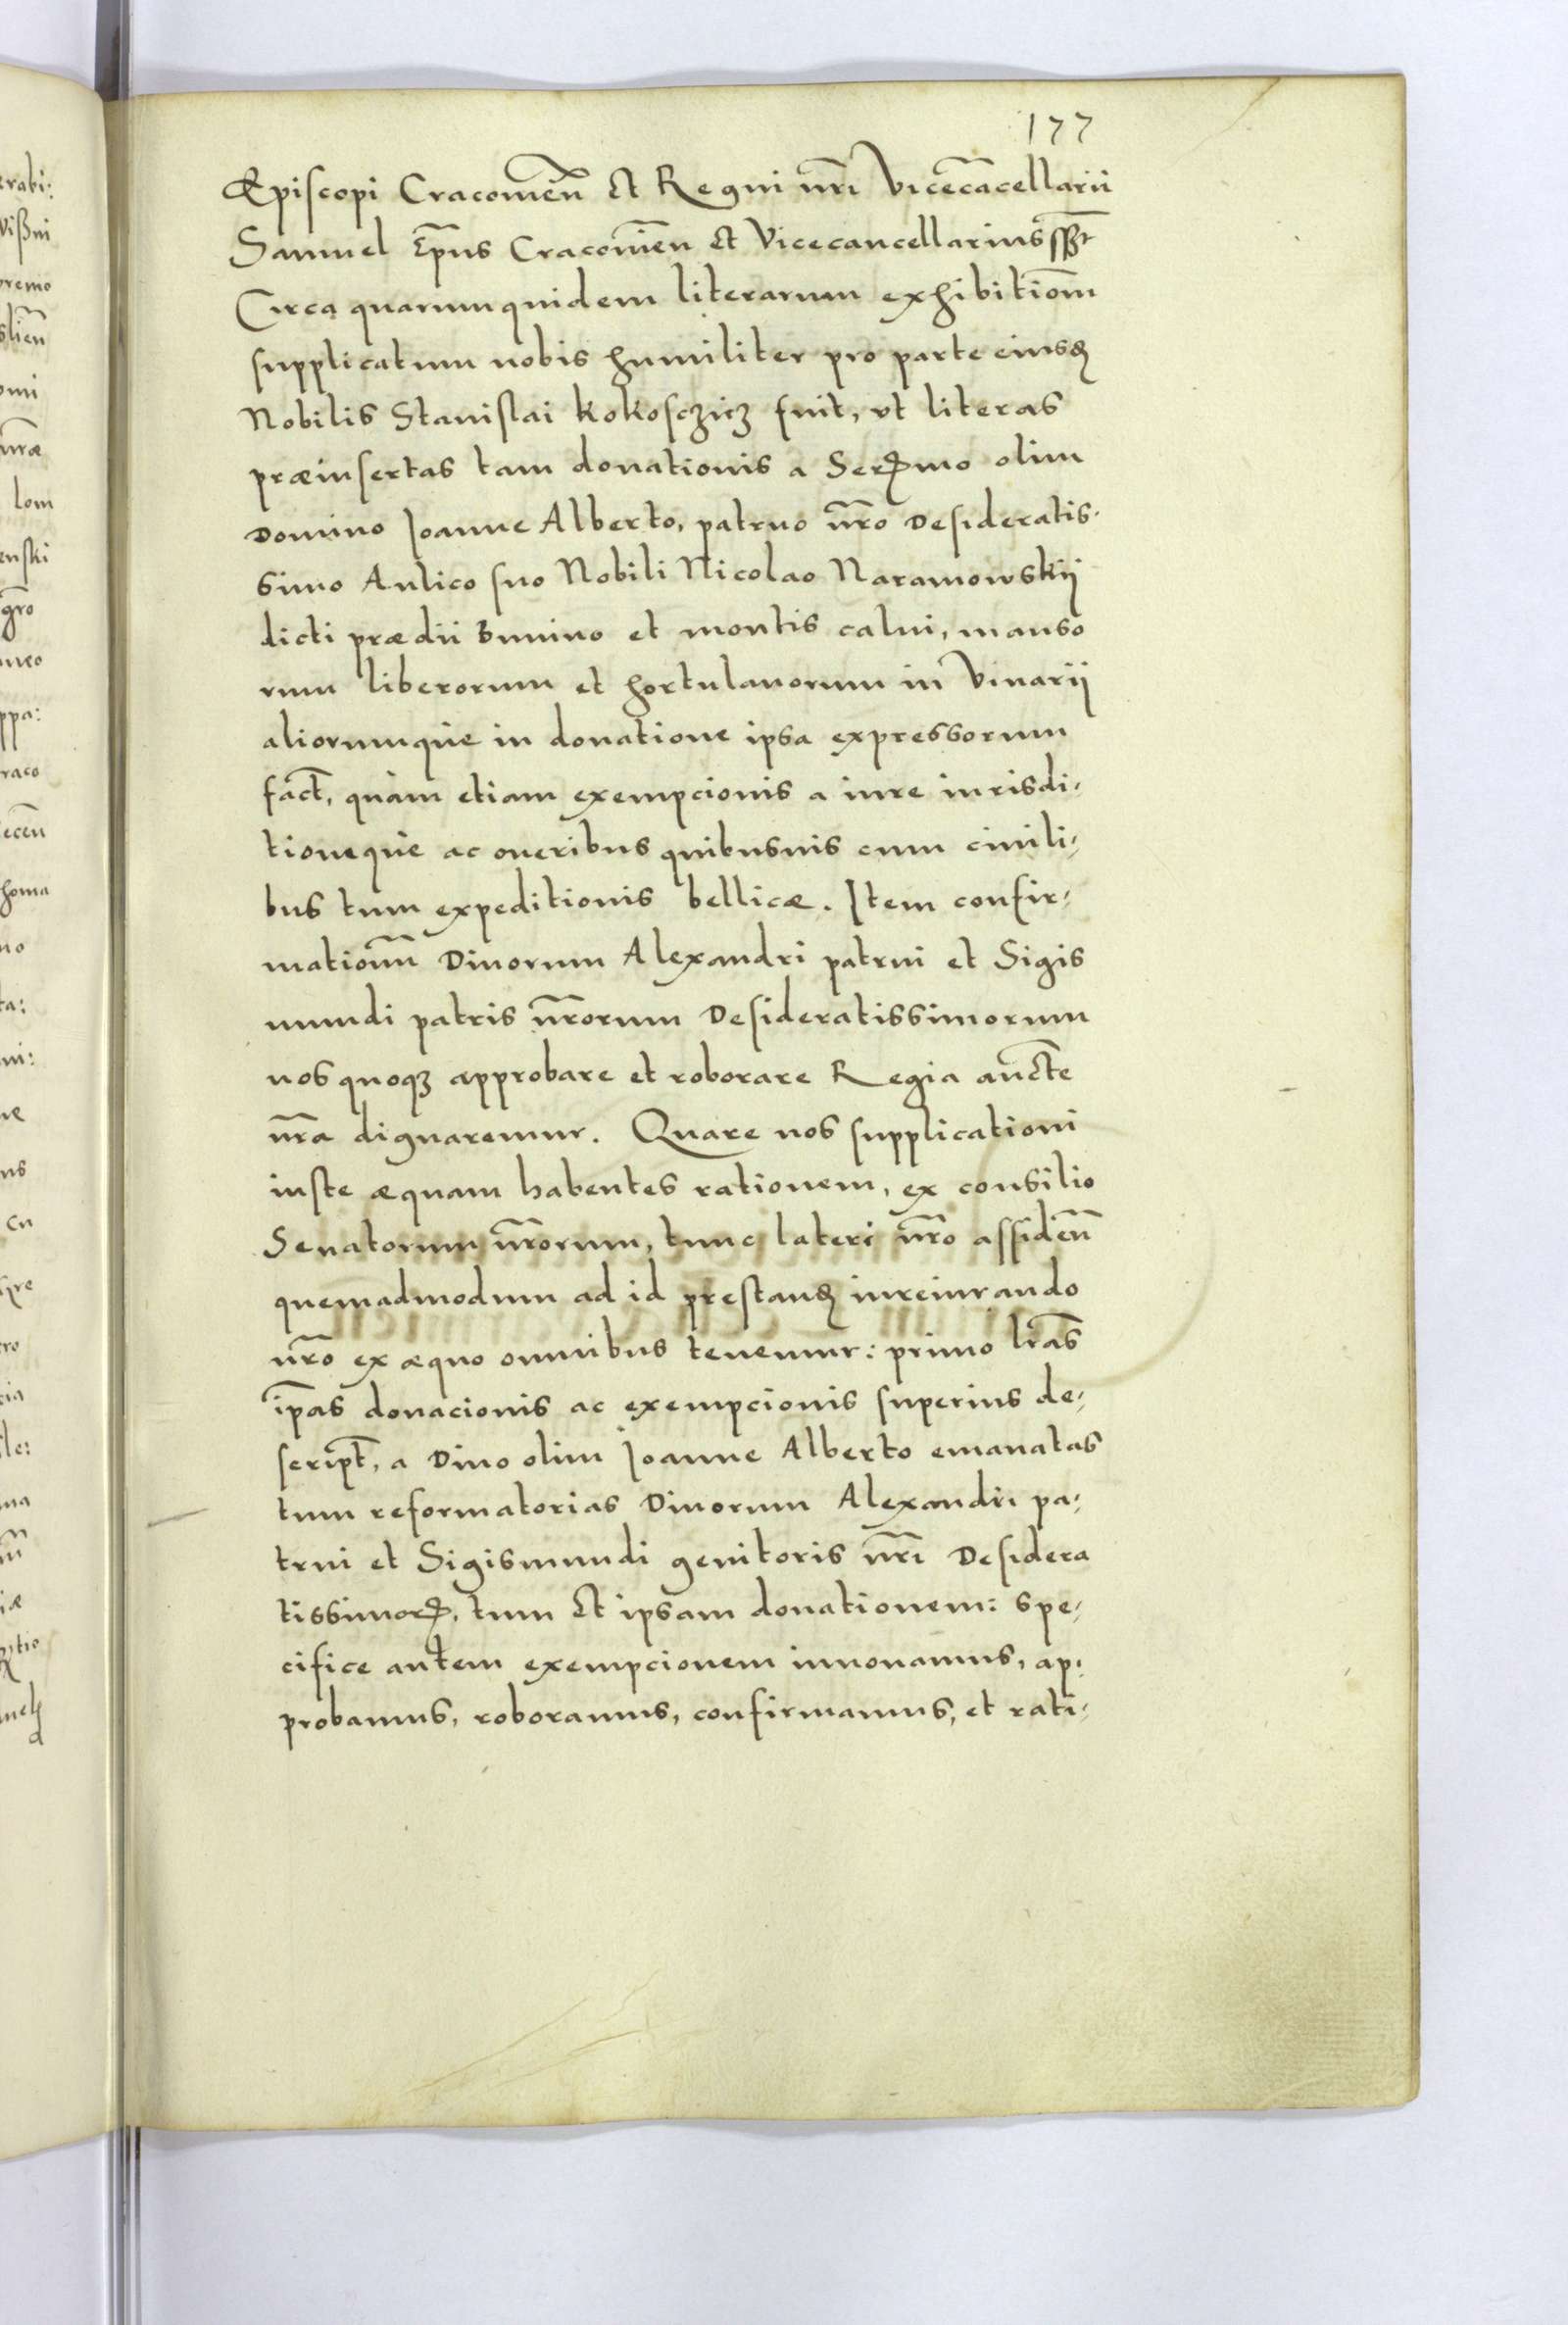 177
Episcopi Cracovien̄ et Regni nr̄i Vicecācellarii
Samuel Ep̄us Cracovien̄ et Vicecancellarius
Circa quarum quidem literarum exhibitiōm
supplicatum nobis humiliter pro parte eiusꝺ
Nobilis Stanislai Kokosczicz fuit, vt literas
præinsertas tam donationis a Sermo olim
Domino Joanne Alberto, patruo nr̄o Desideratis-
simo Aulico suo Nobili Nicolao Naramowskij
dicti prædii Bunino et montis calui, manso
rum liberorum et hortulanorum in Vinarij
aliorumque in donatione ipsa expressorum
fact̄, quàm etiam exempcionis a iure iurisdi-
tioneque ac oneribus quibusuis cum ciuili-
bus tum expeditionis bellicæ. Item confir-
mationū Diuorum Alexandri patrui et Sigis
mundi patris nr̄orum Desideratissimorum
nos quoqꝫ approbare et roborare Regia auctē
nr̄a dignaremur. Quare nos supplicationi
iuste æquam habentes rationem, ex consilio
Senatorum nr̄orum, tunc lateri nr̄o assiden̄
quemadmodum ad id prestanꝺ iureiurando
nr̄o ex æquo omnibus tenemur: primo lr̄as
ip̄as donacionis ac exempcionis superius de-
script̄, a Diuo olim Joanne Alberto emanatas
tum reformatorias Diuorum Alexandri pa-
trui et Sigismundi genitoris nr̄i Desidera
tissimoꝝ, tum et ipsam donationem: spe-
cifice autem exempcionem innouamus, ap-
probamus, roboramus, confirmamus, et rati-